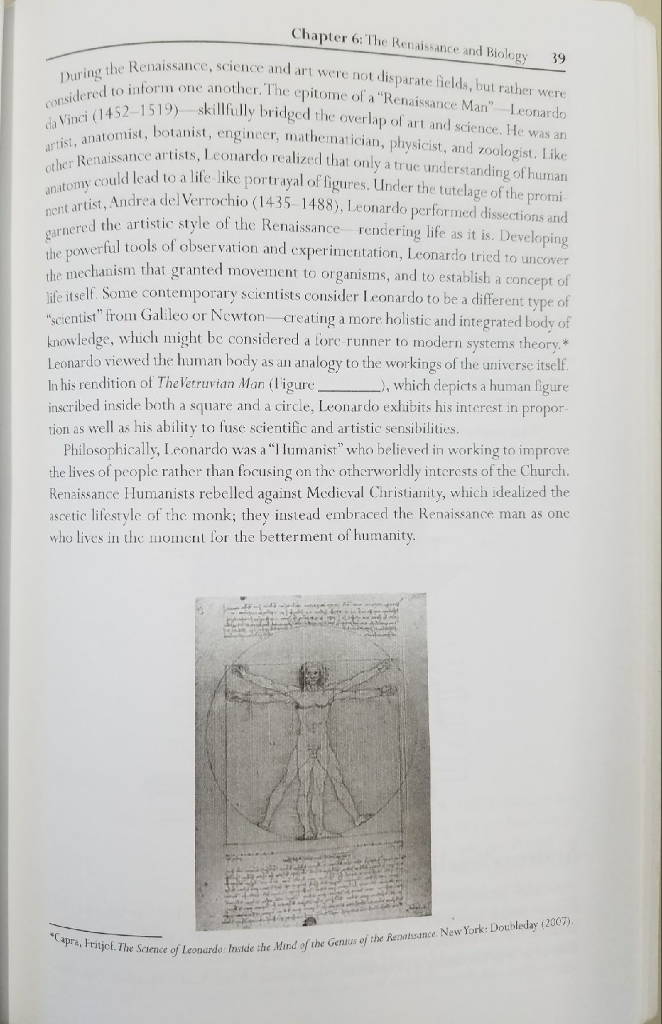 Chapter 6: The Renaissance and Biology 39
During the Renaissance, science and art were not disparate fields, but rather were
considered to inform one another. The epitome of a “Renaissance Man”—Leonardo
da Vinci (1452–1519)—skillfully bridged the overlap of art and science. He was an
artist, anatomist, botanist, engineer, mathematician, physicist, and zoologist. Like
other Renaissance artists, Leonardo realized that only a true understanding of human
anatomy could lead to a life-like portrayal of figures. Under the tutelage of the promi-
nent artist, Andrea del Verrochio (1435–1488), Leonardo performed dissections and
garnered the artistic style of the Renaissance—rendering life as it is. Developing
the powerful tools of observation and experimentation, Leonardo tried to uncover
the mechanism that granted movement to organisms, and to establish a concept of
life itself. Some contemporary scientists consider Leonardo to be a different type of
“scientist” from Galileo or Newton—creating a more holistic and integrated body of
knowledge, which might be considered a fore-runner to modern systems theory.*
Leonardo viewed the human body as an analogy to the workings of the universe itself.
In his rendition of The Vetruvian Man (Figure ________), which depicts a human figure
inscribed inside both a square and a circle, Leonardo exhibits his interest in propor-
tion as well as his ability to fuse scientific and artistic sensibilities.
Philosophically, Leonardo was a “Humanist” who believed in working to improve
the lives of people rather than focusing on the otherworldly interests of the Church.
Renaissance Humanists rebelled against Medieval Christianity, which idealized the
ascetic lifestyle of the monk; they instead embraced the Renaissance man as one
who lives in the moment for the betterment of humanity.
*Capra, Fritjof. The Science of Leonardo: Inside the Mind of the Genius of the Renaissance. New York: Doubleday (2007).